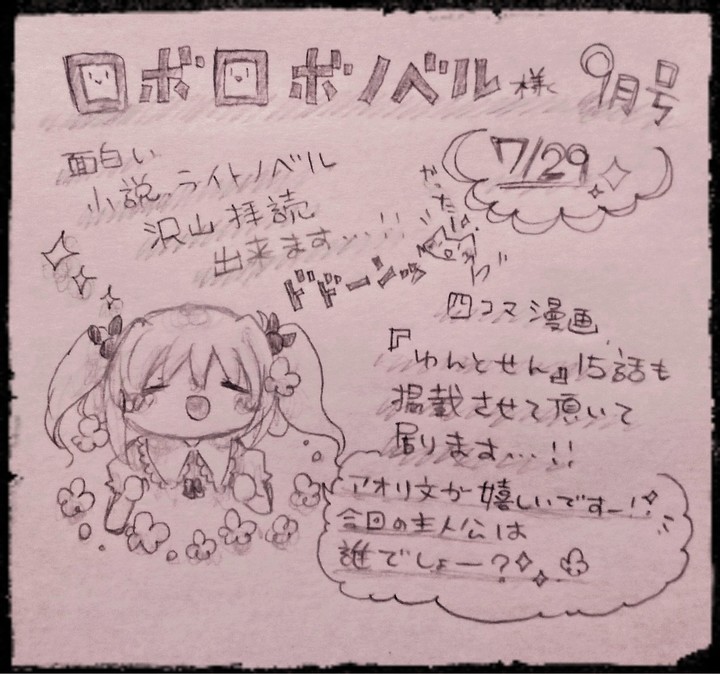 ロボロボノベル様 9月号
7/29
面白い
小説、ライトノベル
沢山拝読
出来ます…!!
ドドーンッ
やったー
四コマ漫画
『ゆんとせん』15話も
掲載させて頂いて
居ります…!!
アオリ文が嬉しいですー!
今回の主人公は
誰でしょー?